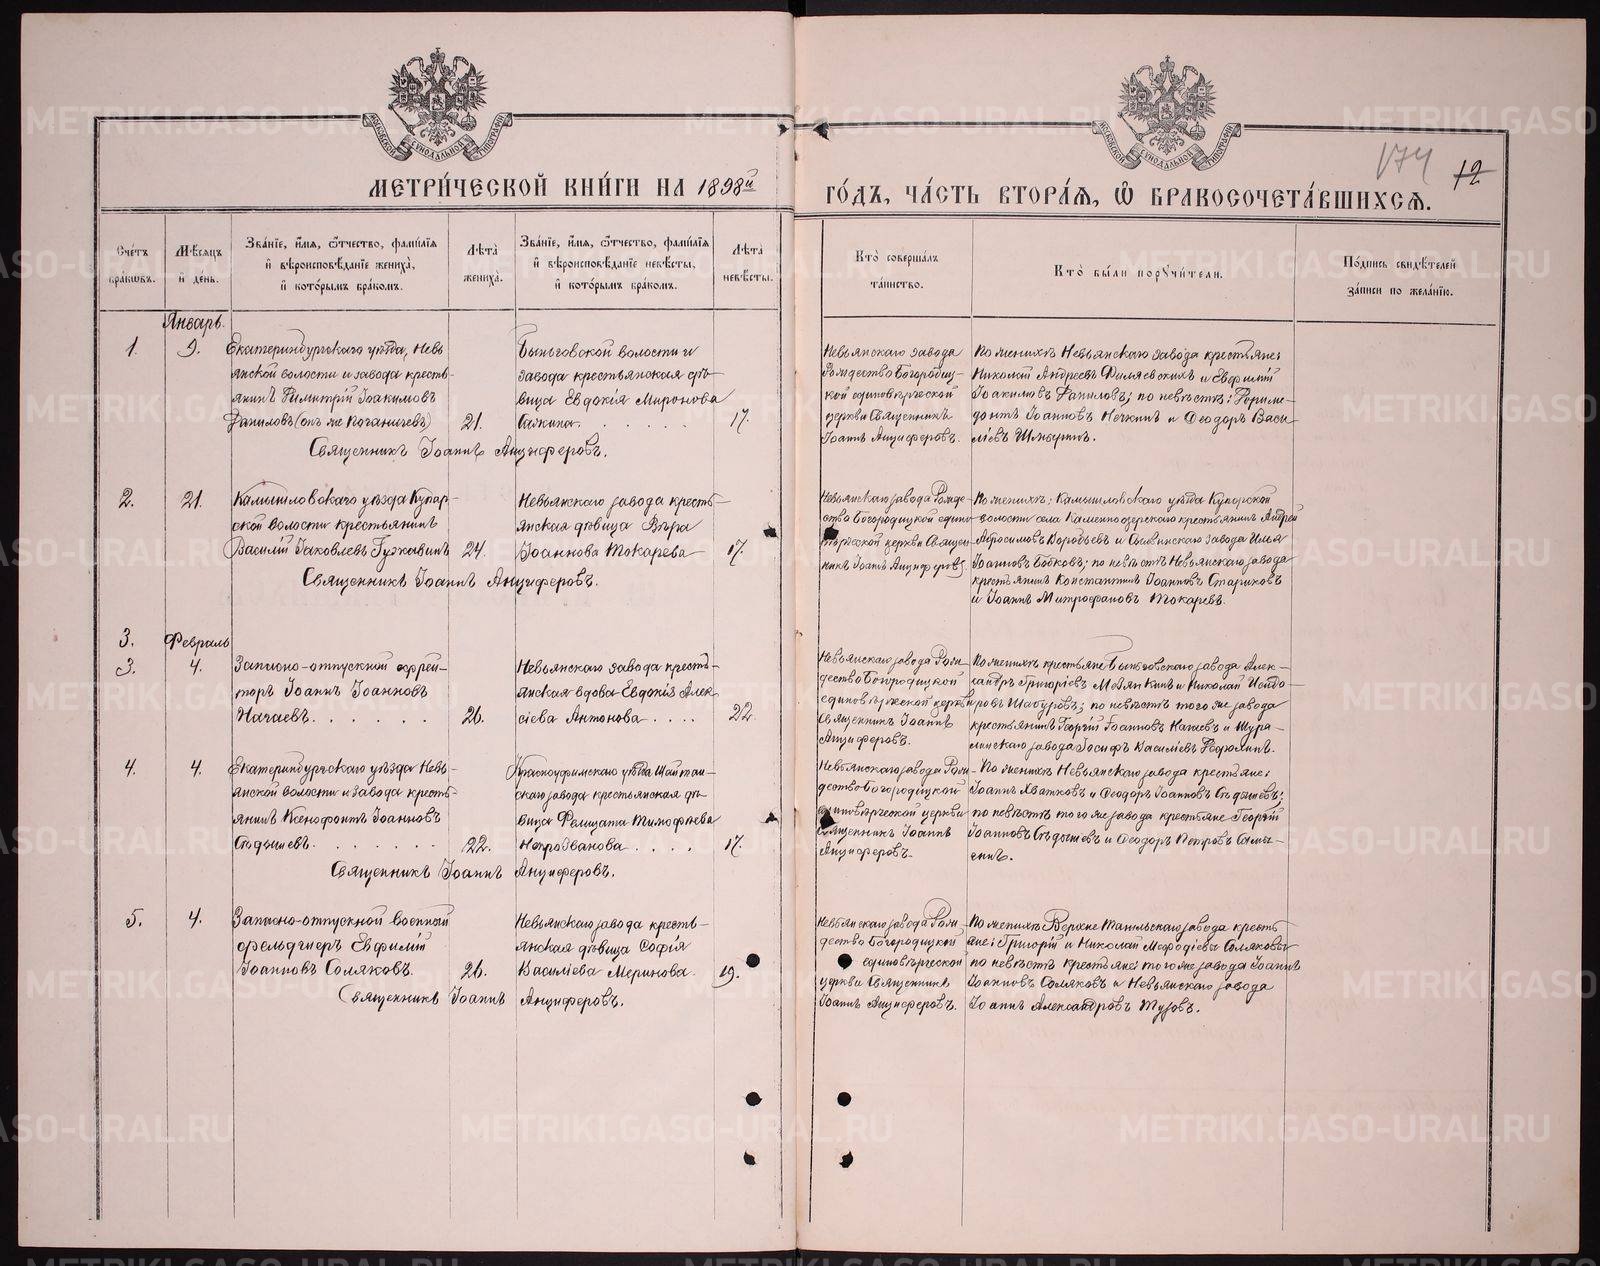 МЕТРИ́ЧЕСКОЙ КНИ́ГИ НА 1898й
ГО́ДЪ, ЧА́СТЬ ВТОРА́Ѧ, Ѡ҆ БРАКОСОЧЕТА́ВШИХСѦ.
174 12
Сче́тъ бра́кѡвъ.
Мѣ́сяцъ и҆ де́нь.
Зва́нїе, и҆́мѧ, ѻ҆́тчество, фами́лїѧ
и҆ вѣроисповѣ́данїе жениха̀,
и҆ кото́рымъ бра́комъ.
Лѣ́та жениха̀.
Зва́нїе, и҆́мѧ, ѻ҆́тчество, фами́лїѧ
и҆ вѣроисповѣ́данїе невѣ́сты,
и҆ кото́рымъ бра́комъ.
Лѣ́та невѣ́сты.
Кто̀ соверша́лъ
та́инство.
Кто̀ бы́ли поручи́тели.
По́дпись свидѣ́телей
за́писи по жела́нїю.
Январь.
1. 9.
Екатеринбургскаго уѣзда, Невь-
янской волости и завода кресть-
янинъ Димитрій Іоакимовъ
Даниловъ (онъ же Коганичевъ) 21.
Быньговской волости и
завода крестьянская дѣ-
вица Евдокія Миронова
17.
Невьянскаго завода
Рождество Богородиц-
кой единовѣрческой
церкви Священникъ
Іоаннъ Анциферовъ.
По женихѣ Невьянскаго завода крестьяне:
Николай Андреевъ и Евфимій
Іоакимовъ Даниловъ; по невѣстѣ:
Іоанновъ и Ѳеодоръ Васи-
ліевъ
Священникъ Іоаннъ Анциферовъ.
2. 21.
Камышловскаго уѣзда Купар-
ской волости крестьянинъ
Василій Іаковлевъ Гужавинъ 24.
Невьянскаго завода кресть-
янская дѣвица Вѣра
Іоаннова Токарева 17.
Невьянскаго завода Рожде-
ство Богородицкой едино-
вѣрческой церкви Священ-
никъ Іоаннъ Анциферовъ.
По женихѣ: Камышловскаго уѣзда Купорской
волости села Каменноозерскаго крестьянинъ Андрей
Абросимовъ Воробьевъ и Сылвинскаго завода Илья
Іоанновъ Бобковъ; по невѣстѣ Невьянскаго завода
крестьяне Константинъ Іоанновъ Стариковъ
и Іоаннъ Митрофановъ Токаревъ.
Священникъ Іоаннъ Анциферовъ.
3. Февраль
3. 4.
Запасно-отпускной ефрей-
торъ Іоаннъ Іоанновъ
Начаевъ. 26.
Невьянскаго завода кресть-
янская вдова Евдокія Алек-
сіева Антонова 22.
Невьянскаго завода Рож-
дество Богородицкой
единовѣрческой церкви
Священникъ Іоаннъ
Анциферовъ.
По женихѣ крестьяне Быньговскаго завода Алек-
сандръ Григоріевъ Мѣдянкинъ и Николай Исидо-
ровъ Шабуровъ; по невѣстѣ того же завода
крестьянинъ Георгій Іоанновъ Нагаевъ и Шура-
линскаго завода Іосифъ Василіевъ Федюлинъ.
4. 4.
Екатеринбургскаго уѣзда Невь-
янской волости и завода кресть-
янинъ Ксенофонтъ Іоанновъ
Сѣдышевъ. 22.
Красноуфимскаго уѣзда Шайтан-
скаго завода крестьянская дѣ-
вица Фелицата Тимофѣева
Непрованова 17.
Невьянскаго завода Рож-
дество Богородицкой
единовѣрческой церкви
Священникъ Іоаннъ
Анциферовъ.
По женихѣ Невьянскаго завода крестьяне:
Іоаннъ Хватковъ и Ѳеодоръ Іоанновъ Сѣдышевъ;
по невѣстѣ того же завода крестьяне Георгій
Іоанновъ Сѣдышевъ и Ѳеодоръ Петровъ Самы-
гинъ.
Священникъ Іоаннъ Анциферовъ.
5. 4.
Запасно-отпускной военный
фельдшеръ Евфимій
Іоанновъ Соляковъ. 26.
Невьянскаго завода кресть-
янская дѣвица Софія
Василіева Меринова. 19.
Невьянскаго завода Рож-
дество Богородицкой
единовѣрческой
церкви Священникъ
Іоаннъ Анциферовъ.
По женихѣ Верхне Тагильскаго завода кресть-
яне: Григорій и Николай Мефодіевъ Соляковы
по невѣстѣ крестьяне: того же завода Іоаннъ
Іоанновъ Соляковъ и Невьянскаго завода
Іоаннъ Александровъ Тузовъ.
Священникъ Іоаннъ Анциферовъ.
METRIKI.GASO-URAL.RU